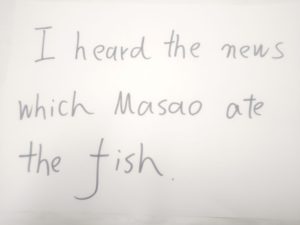 I heard the news
which Masao ate
the fish.